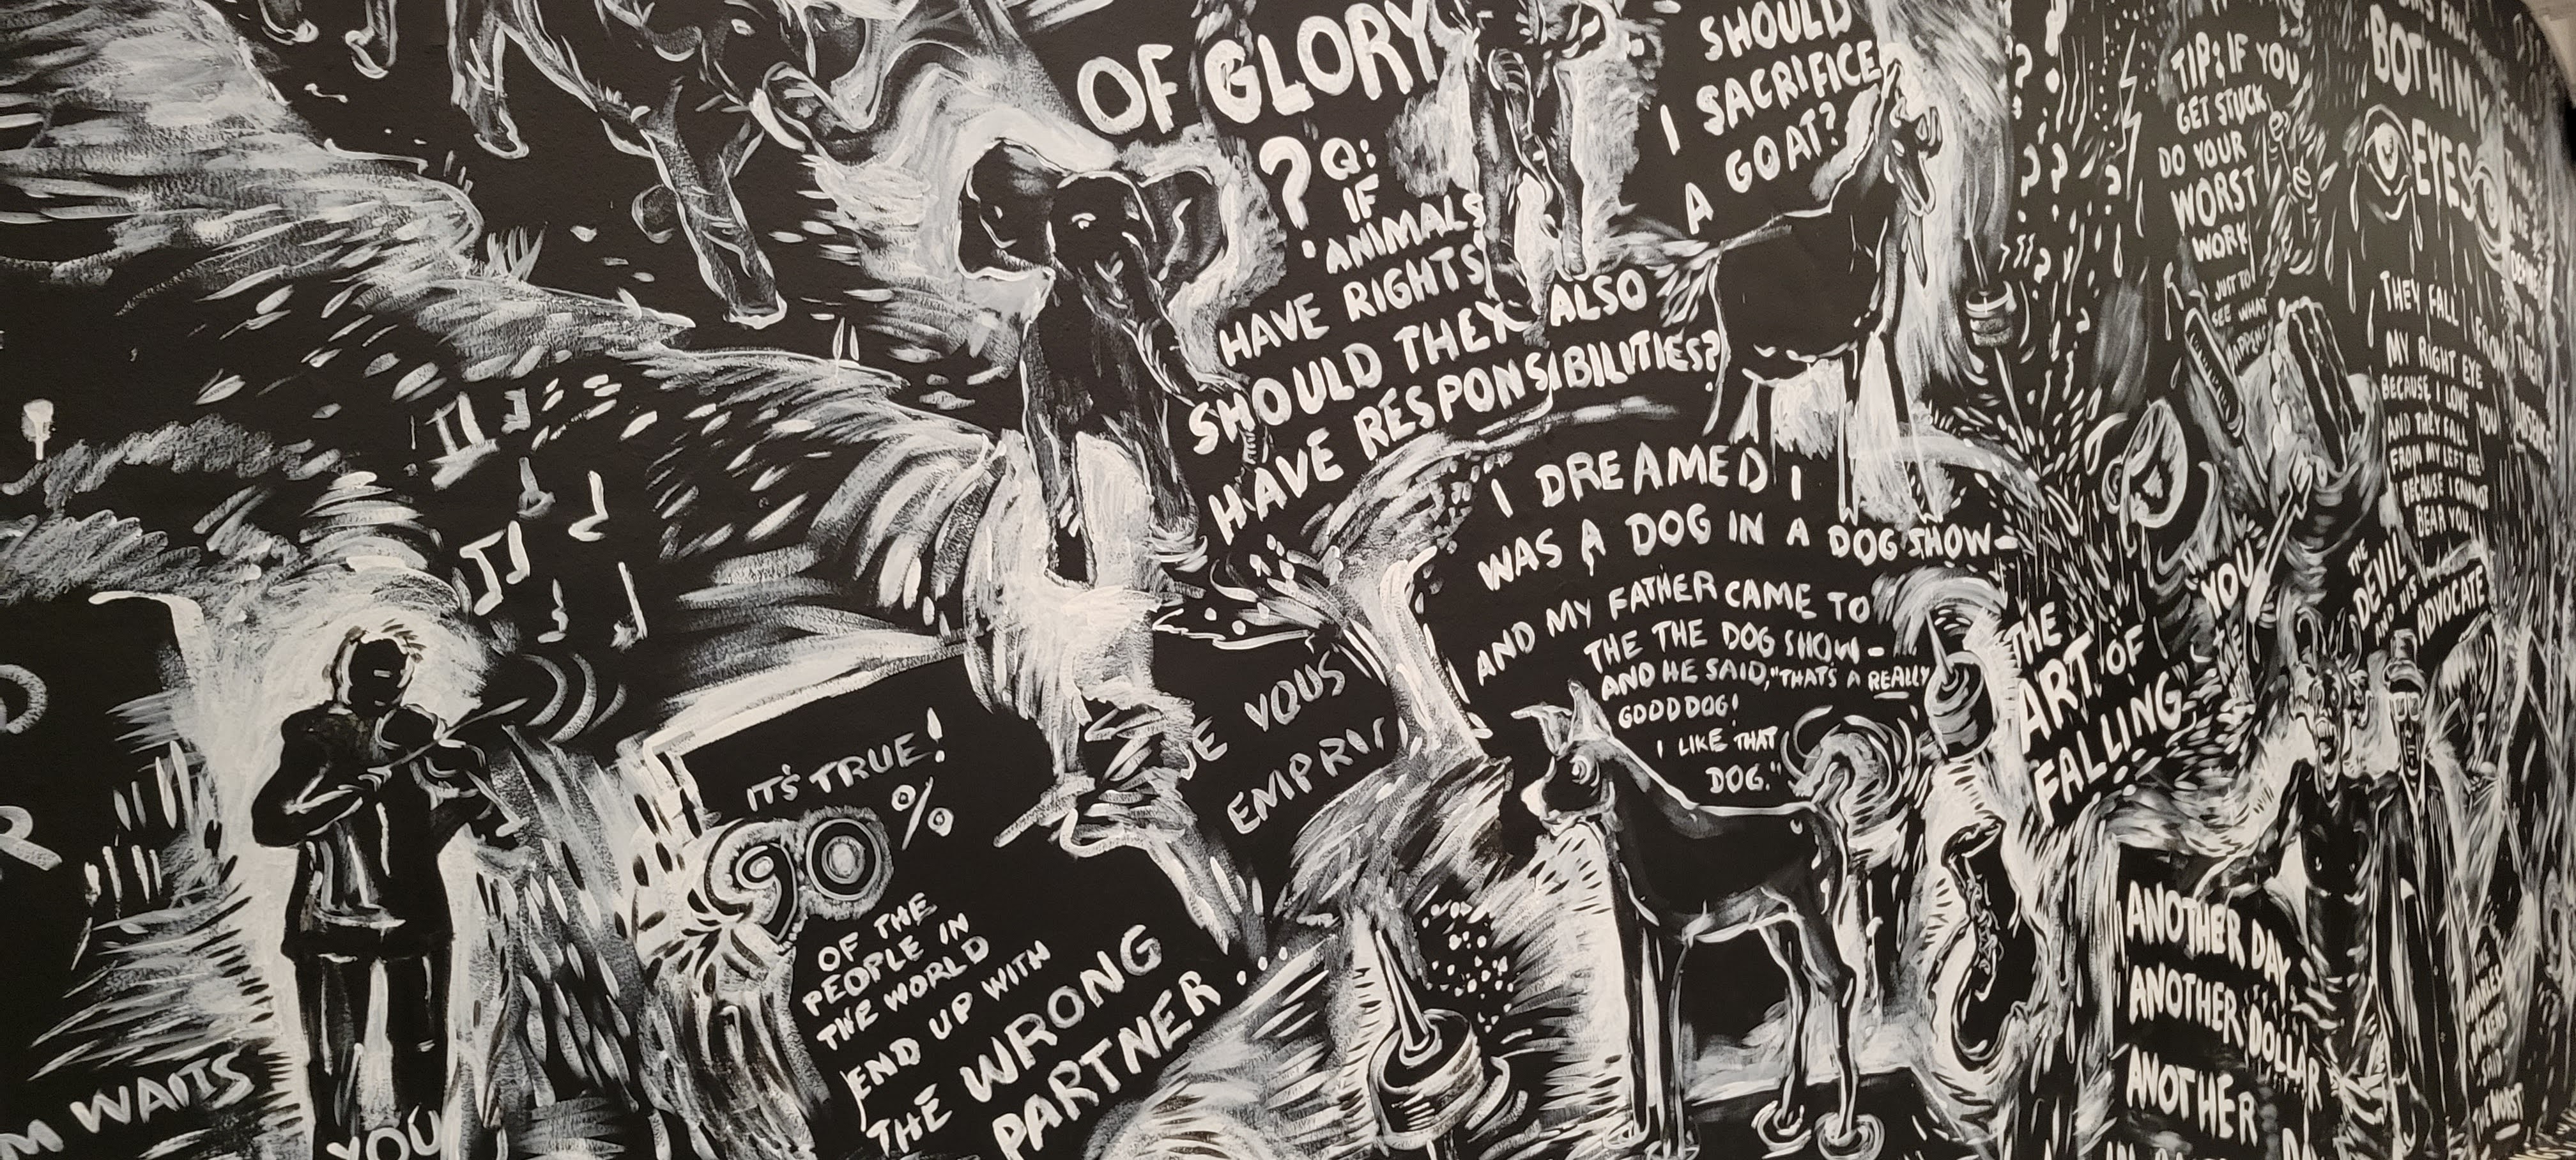 OF GLORY
?
Q:
IF
'ANIMALS
HAVE RIGHTS'
SHOULD THEY ALSO
HAVE RESPONSIBILITIES?
SHOULD
I SACRIFICE
A GOAT?
I DREAMED I
WAS A DOG IN A DOG SHOW-
AND MY FATHER CAME TO
THE THE DOG SHOW-
AND HE SAID, "THAT'S A REALLY
GOOD DOG!
I LIKE THAT
DOG."
IT'S TRUE!
90%
OF THE
PEOPLE IN
THE WORLD
END UP WITH
THE WRONG
PARTNER...
VOUS
M WAITS
YOU
THE
ART OF
FALLING"
TIP: IF YOU
GET STUCK
DO YOUR
WORST
WORK
JUST TO
SEE WHAT
HAPPENS
BOTH MY
EYES
THEY FALL FROM
MY RIGHT EYE
BECAUSE I LOVE YOU
AND THEY FALL
FROM MY LEFT EYE
BECAUSE I CANNOT
BEAR YOU.
YOU
ME
THE
DEVIL
AND HIS
ADVOCATE
ANOTHER DAY
ANOTHER DOLLAR
ANOTHER
CHARLES
DICKENS
SAID
THE WORST